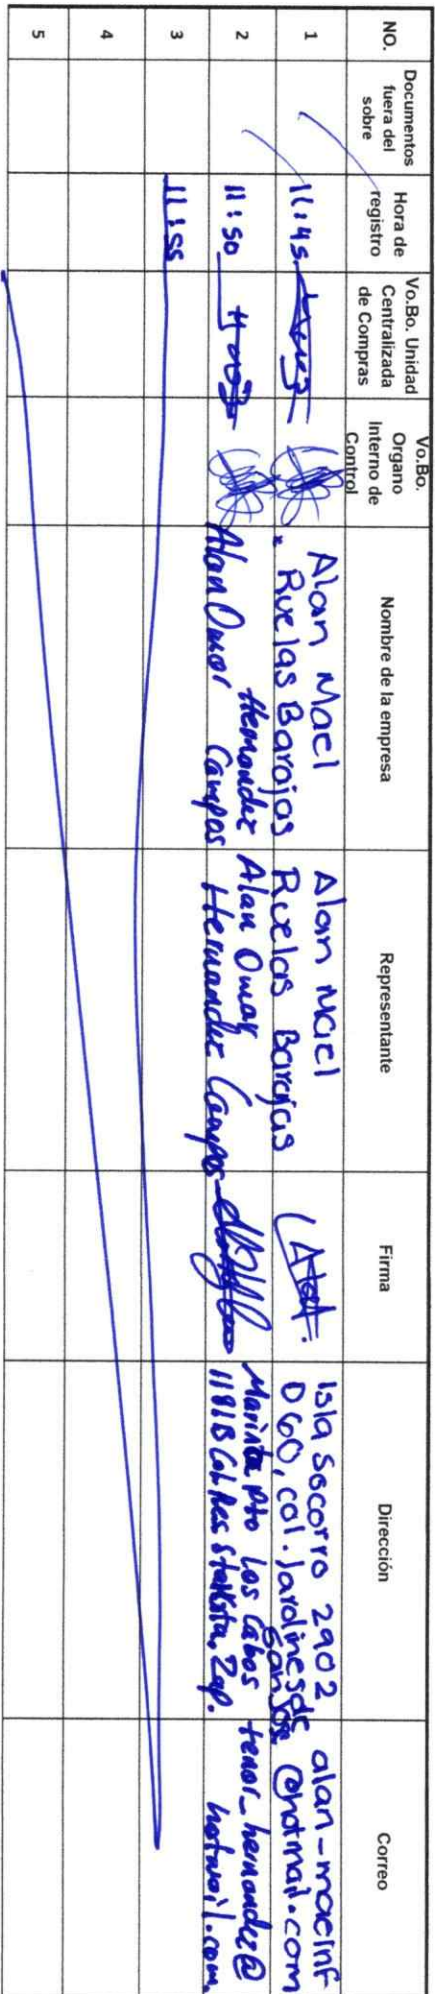 NO.
Documentos
fuera del
sobre
Hora de
registro
Vo.Bo. Unidad
Centralizada
de Compras
Vo.Bo.
Organo
Interno de
Control
Nombre de la empresa
Representante
Firma
Dirección
Correo
1
11:45
Alan Mael
Ruelas Barajas
Alan Mael
Ruelas Barajas
Isla Socorro 2902
D60, col. Jardines de
San José
alan-maeinf
@hotmail.com
2
11:50
Hernandez
Alan Omar Campos
Alan Omar
Hernandez Campos
Marinta Pto Los Cabos
1181B Col. Res
Zap.
tenor_hernandez@
hotmail.com
3
11:55
4
5